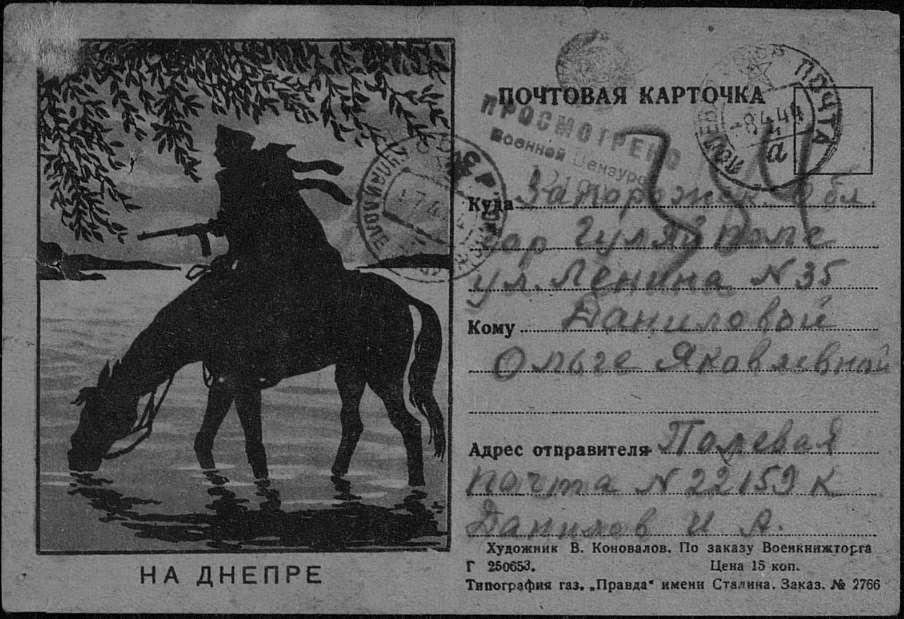 ПОЧТОВАЯ КАРТОЧКА
ПРОСМОТРЕНО
Военной Цензурой
ПОЧТА
8 4 44
а
Куда Запорожск. Обл.
гор Гуляй поле
ул. Ленина N 35
Кому Даниловой
Ольге Яковлевной
Адрес отправителя Полевая
почта N 22153 К
Данилов И А.
Художник В. Коновалов. По заказу Военкнижторга
Г 250653. Цена 15 коп.
Типография газ. „Правда" имени Сталина. Заказ. № 2766
НА ДНЕПРЕ